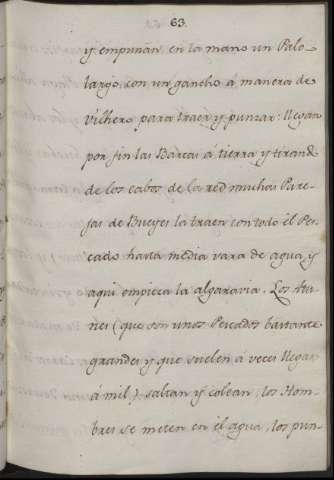 63.
y empuñan en la mano un Palo
largo, con un gancho á manera de
Vilhero para traer y punzar: llegan
por fin las Barcas á tierra y tirando
de los cabos de la red muchas Pare-
jas de Bueyes la traen con todo el Pes-
cado hasta media vara de agua y
aqui empieza la algaravia. Los Atu-
nes (que son unos Pescados bastante
grandes y que suelen á veces llegar
á mil) saltan y colean, los Hom-
bres se meten en el agua, los pun-